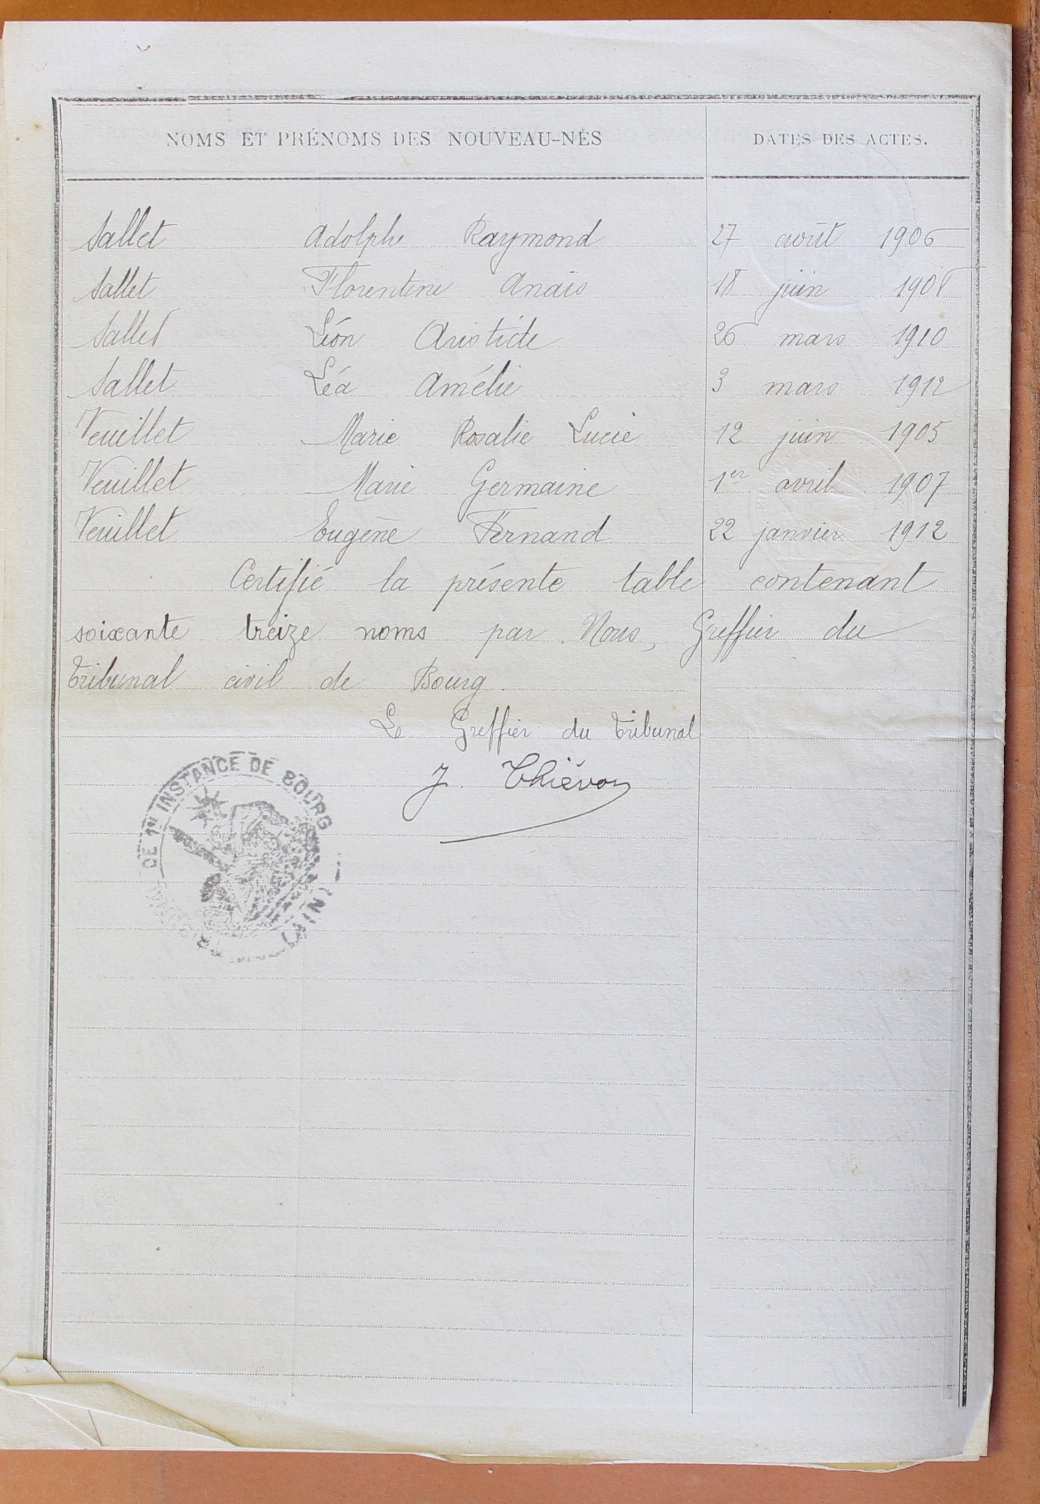 NOMS ET PRÉNOMS DES NOUVEAU-NÉS DATES DES ACTES.
Sallet Adolphe Raymond 27 août 1906
Sallet Florentine Anaïs 18 juin 1908
Sallet Léon Aristide 26 mars 1910
Sallet Léa Amélie 3 mars 1912
Veuillet Marie Rosalie Lucie 12 juin 1905
Veuillet Marie Germaine 1er avril 1907
Veuillet Eugène Fernand 22 janvier 1912
Certifié la présente table contenant
soixante treize noms par Nous, Greffier du
tribunal civil de Bourg.
Le Greffier du tribunal
J. Thiévon
DE 1re INSTANCE DE BOURG
(AIN)